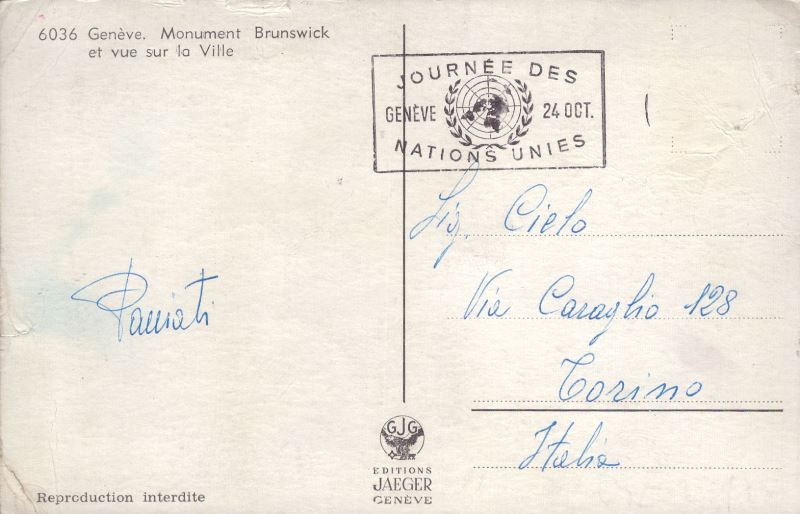 6036 Genève. Monument Brunswick
et vue sur la Ville
JOURNÉE DES
GENÈVE 24 OCT.
NATIONS UNIES
Sig. Cielo
Via Caraglio 128
Torino
Italia
GJG
EDITIONS
JAEGER
GENÈVE
Reproduction interdite